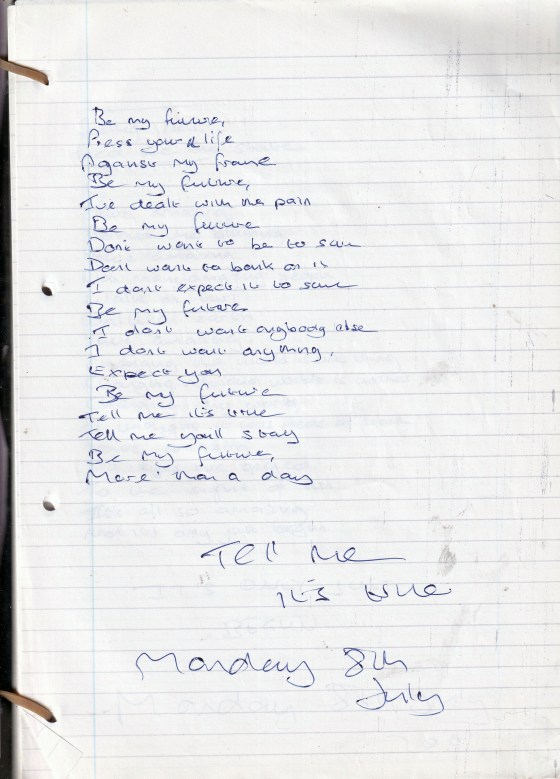 Be my future,
Press your life
Against my frame
Be my future,
I've dealt with the pain
Be my future
Don't want to be to
Don't want to bank on it
I don't expect it to
Be my future
I don't want anybody else
I don't want anything,
Expect you
Be my future
Tell me it's true
Tell me you'll stay
Be my future,
More than a day
Tell me
it's true
Monday 8th
July